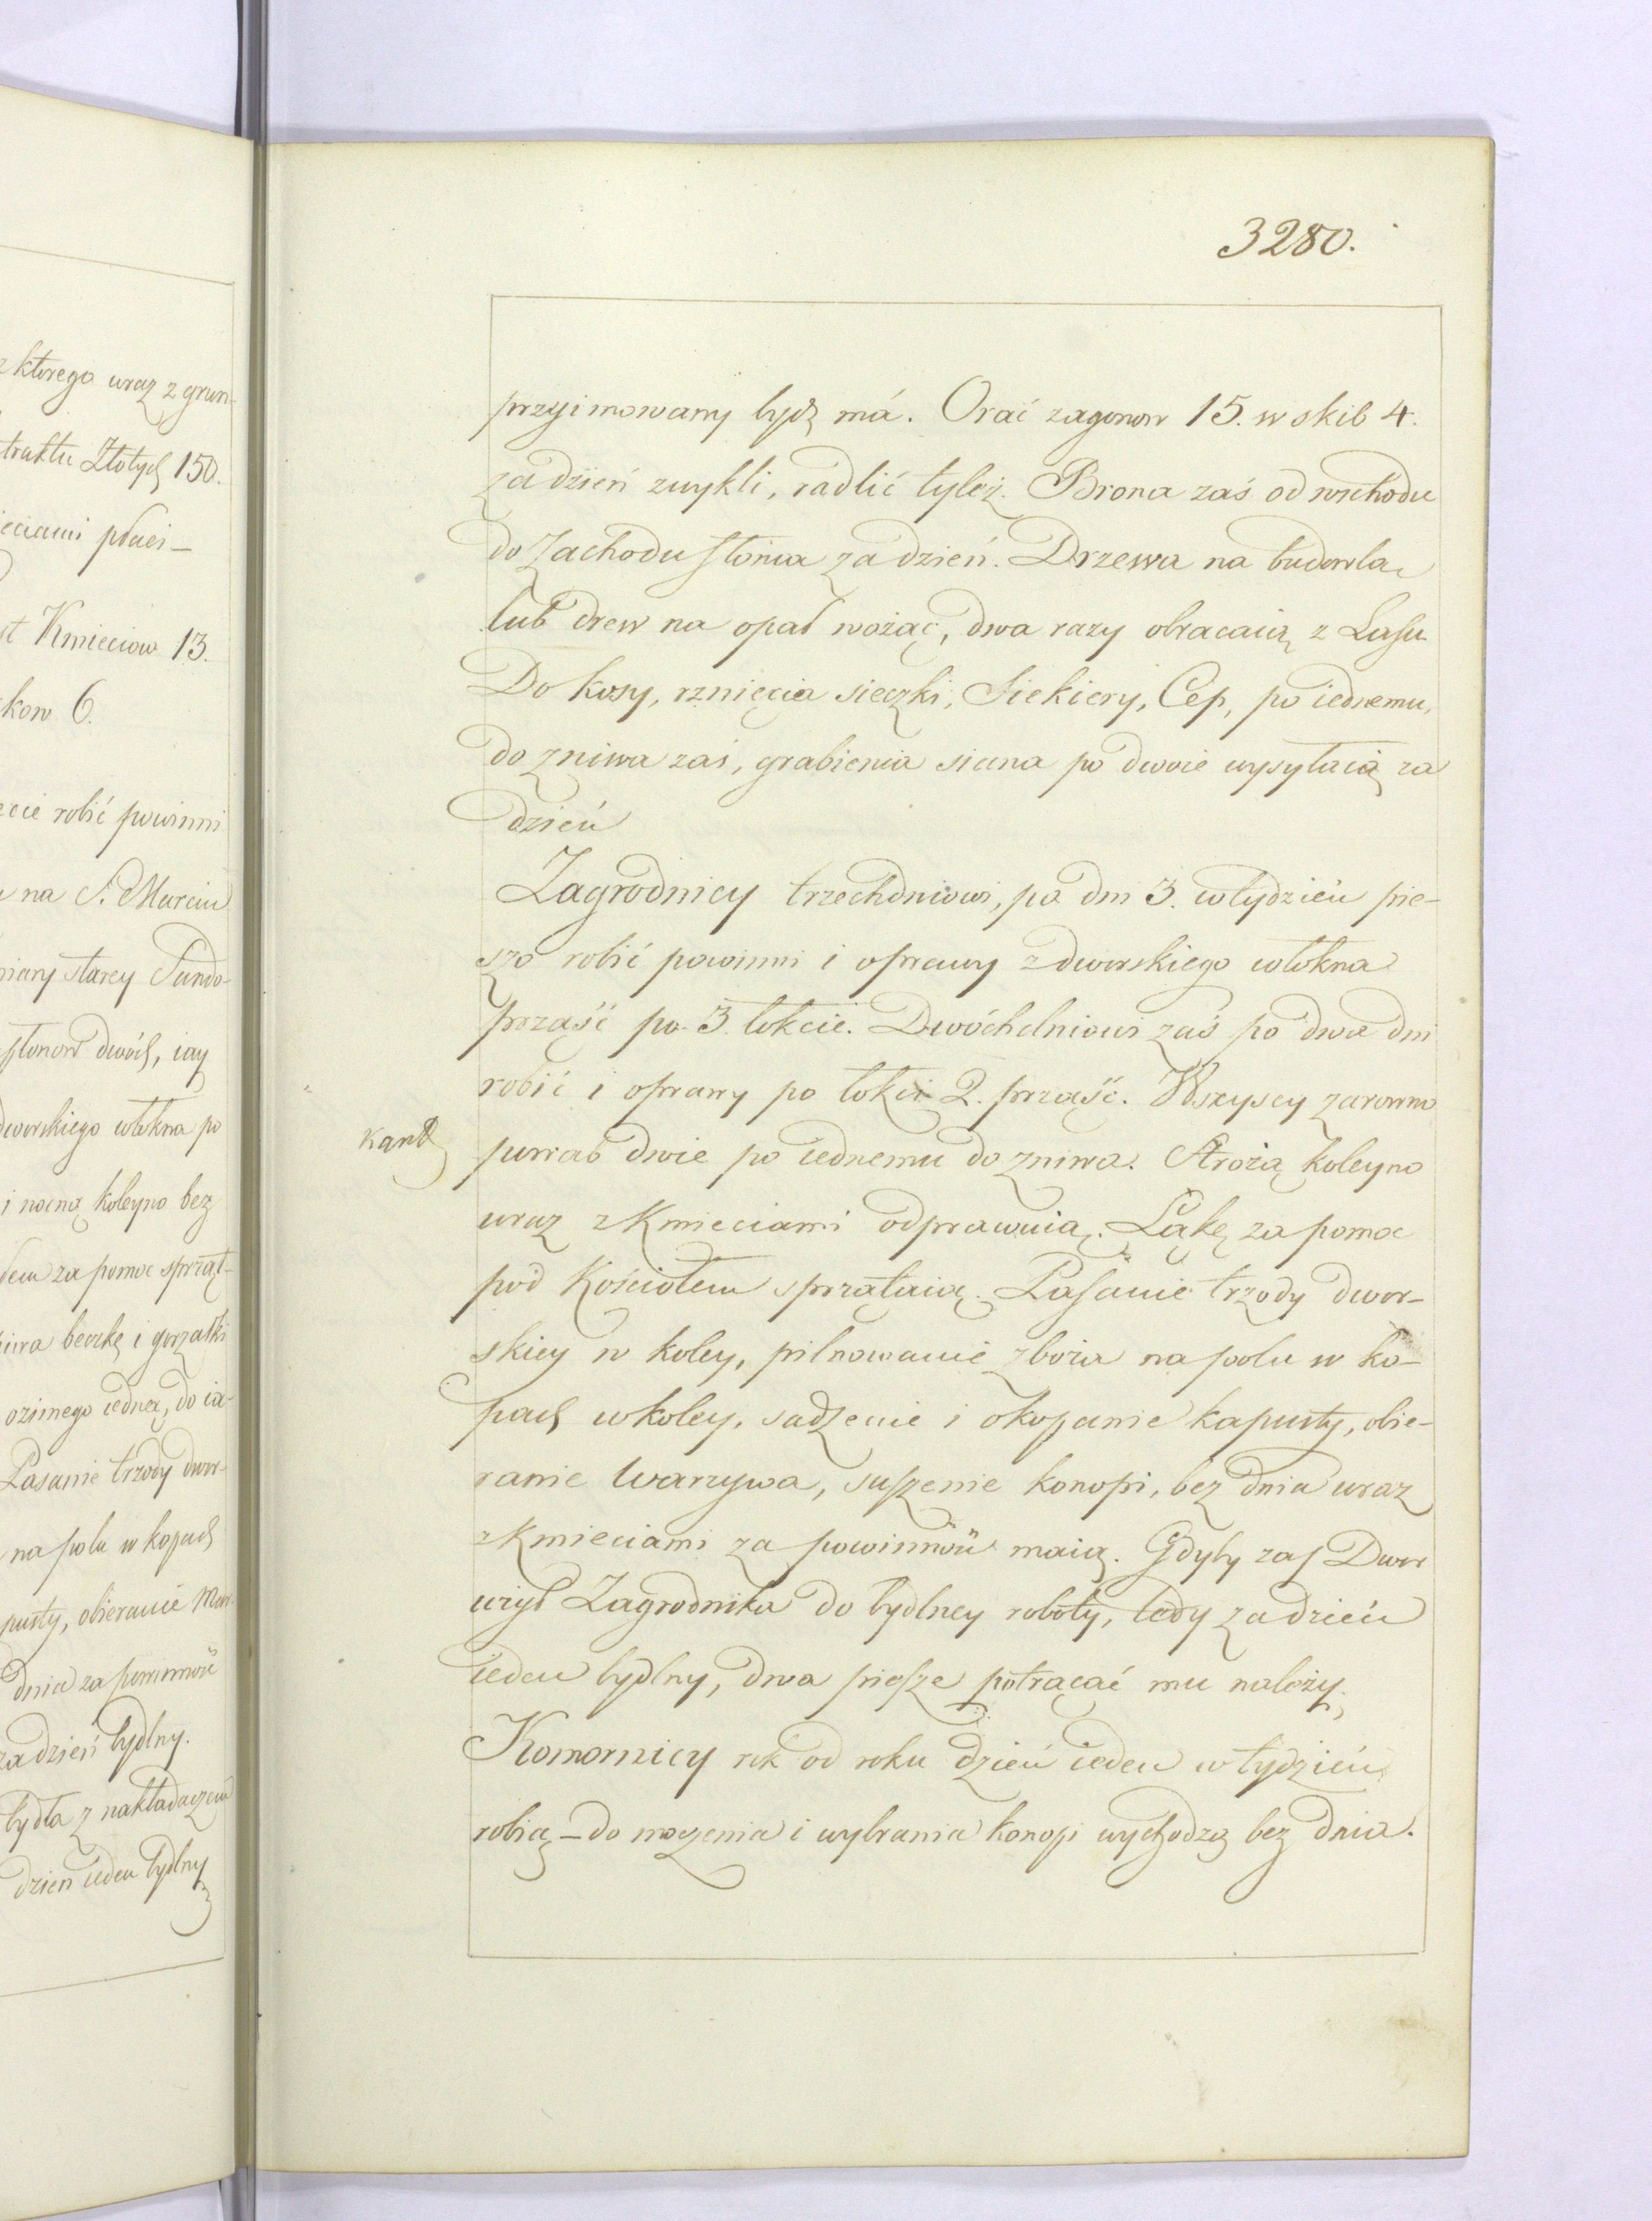 z ktorego wraz z grun-
traktu Złotych 150.
ieciami płaci_
st Kmieciow 13.
kow 6.
ecie robić powinni
na S. Marcin
miary starey Sando-
słonow dwóch, iay
dworskiego włokna po
i nocną koleyno bez
za pomoc sprząt-
beczkę i gorzałki
ozimego iedną, do ia-
Pasanie trzody dwor-
na polu w kopach
pusty, obieranie
dnia za powinność
za dzień bydlny.
bydła z nakładaczem
dzień ieden bydlny
3280.
przyimowany bydź má. Orać zagonow 15. w skib 4.
za dzień zwykli, radlić tyleż. Brona zaś od wschodu
do Zachodu słońca za dzień. Drzewa na budowlą
lub drew na opał wożąc, dwa razy obracaią z Lasu
Do kosy, rznięcia sieczki, Siekiery, Cep, po iednemu,
do zniwa zaś, grabienia siana po dwoie wysyłaią za
dzień
Zagrodnicy trzechdniowi, po dni 3. w tydzień pie-
szo robić powinni i oprawy z dworskiego włokna
prząść po 3 łokcie. Dwóchdniowi zaś po dwa dni
robić i oprawy po łokci 2. prząść. Wszyscy zarowno
powab dwie po iednemu do zniwa. Strożą koleyno
wraz z Kmieciami odprawuią. Łąkę za pomoc
pod Kościołem sprzątaią. Pasanie trzody dwor-
skiey w koley, pilnowanie zboża na polu w ko-
pach w koley, sadzenie i okopanie kapusty, obie-
ranie Warzywa, suszenie konopi, bez dnia wraz
z Kmieciami za powinność maią. Gdyby zaś Dwor
użył Zagrodnika do bydlney roboty, tedy za dzień
ieden bydlny, dwa piesze potrącać mu należy.
Komornicy rok od roku dzień ieden w tydzień
robią – do moczenia i wybrania konopi wychodzą bez dnia.